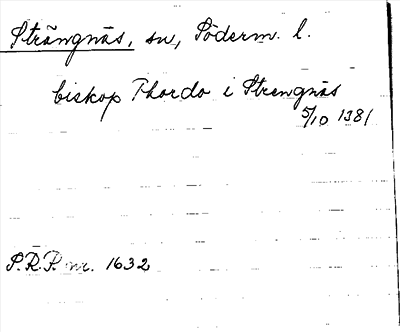 Strängnäs, sn, Söderm. l.
biskop Thordo i Strengnäs
5/10 1381
S.R.P. nr. 1632